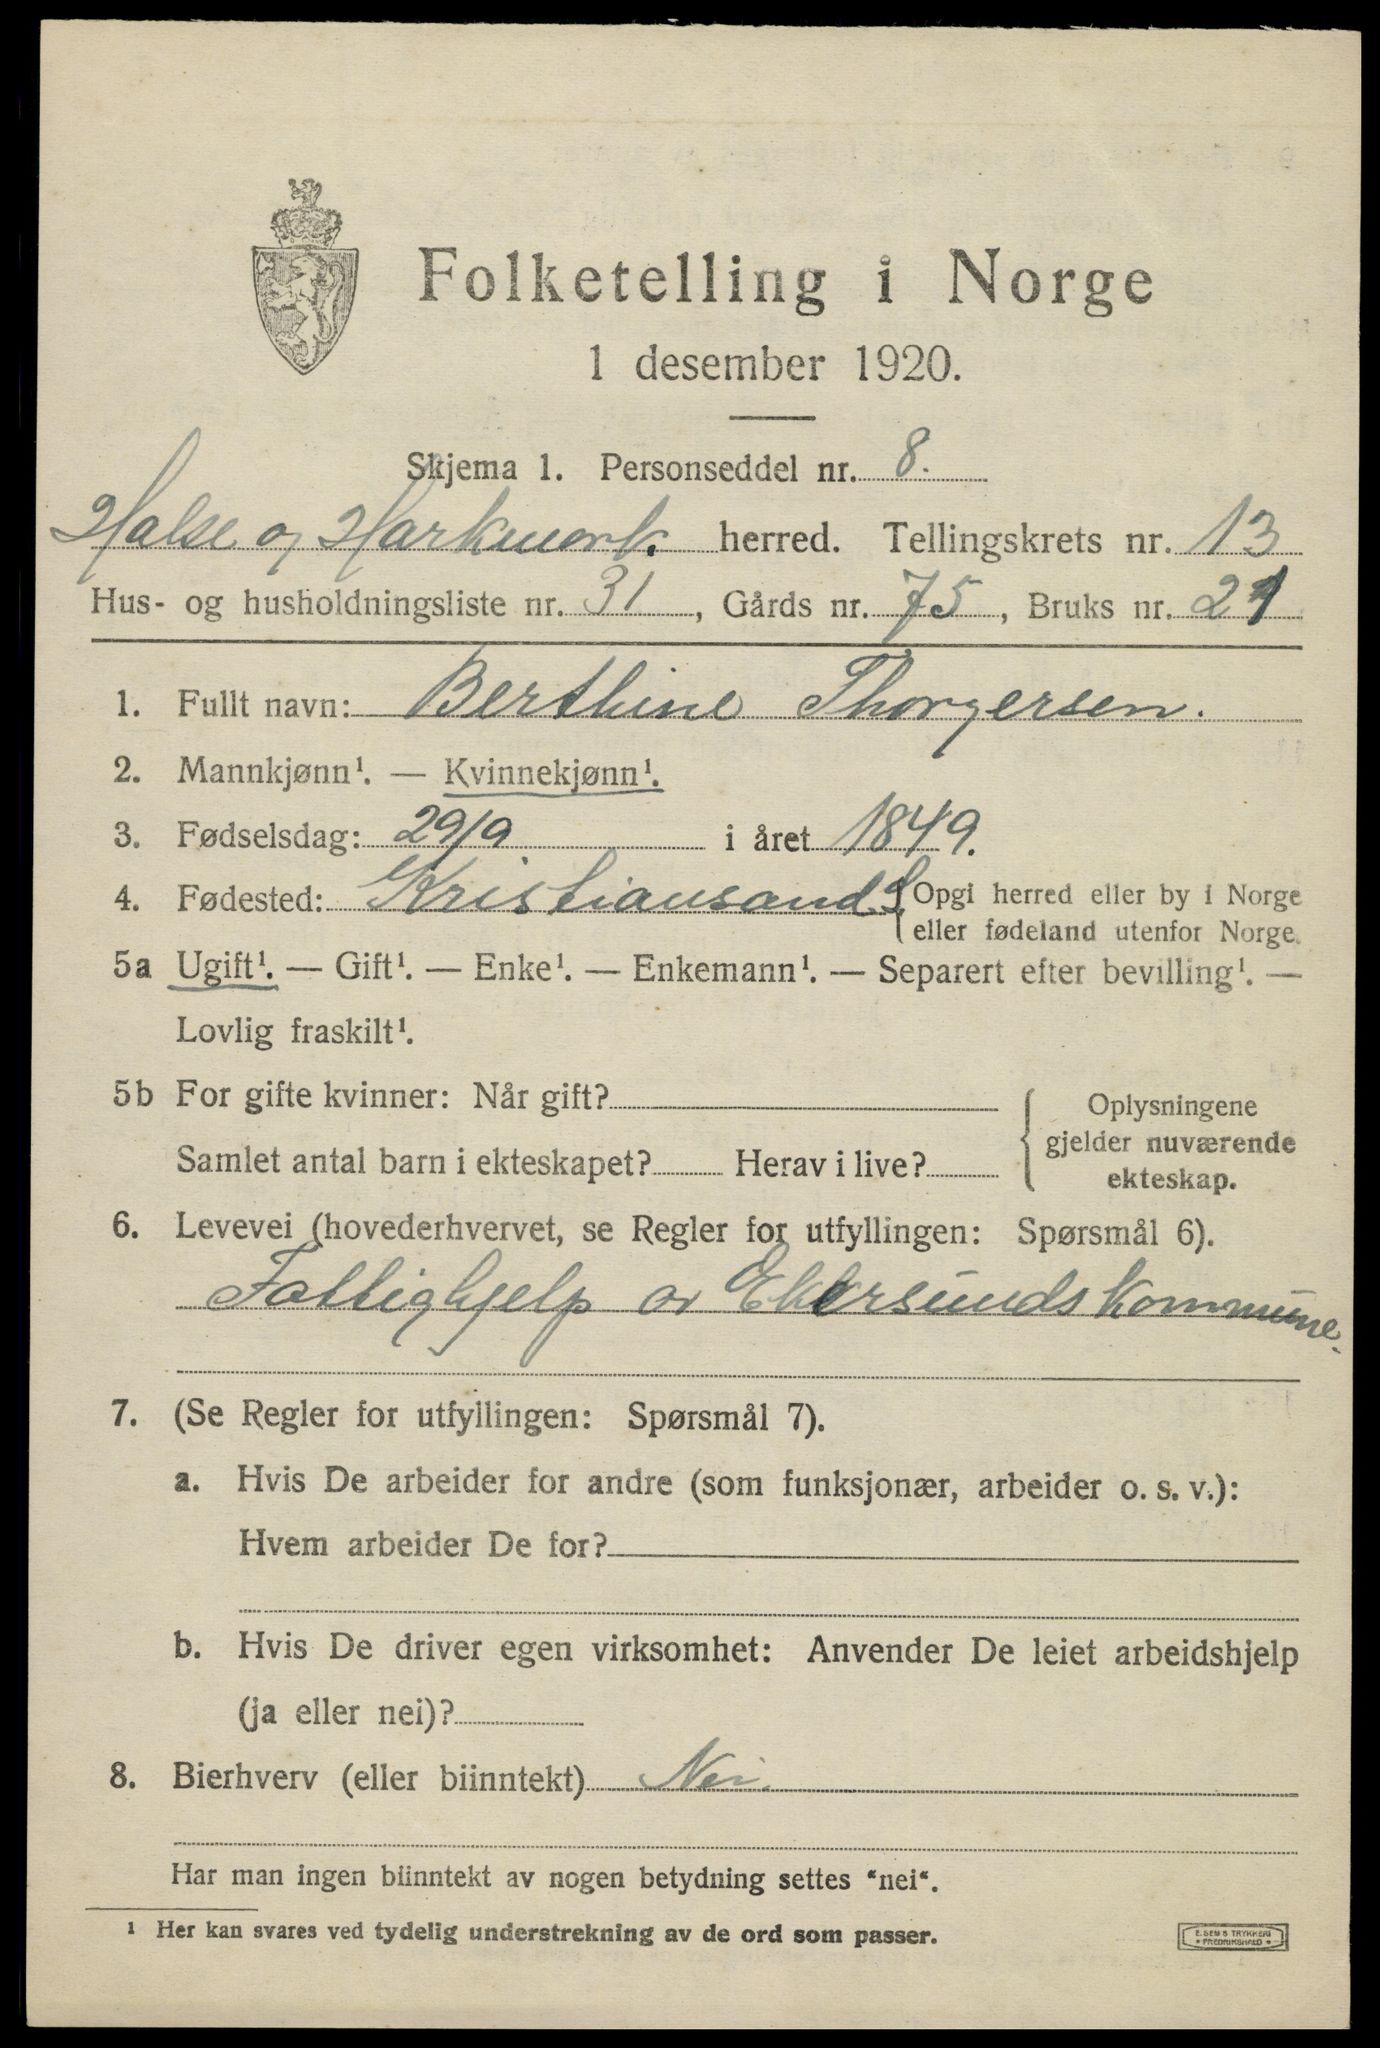 Folketelling i Norge
1 desember 1920.
Skjema 1. Personseddel nr. 8.
Halse og Harkmark. herred. Tellingskrets nr. 13
Hus- og husholdningsliste nr. 31, Gårds nr. 75, Bruks nr. 21
1. Fullt navn: Berthine Thorgersen.
2. Mannkjønn¹. — Kvinnekjønn¹.
3. Fødselsdag: 29/9 i året 1849.
4. Fødested: Kristiansand S. Opgi herred eller by i Norge
eller fødeland utenfor Norge.
5a Ugift¹. — Gift¹. — Enke¹. — Enkemann¹. — Separert efter bevilling¹. —
Lovlig fraskilt¹.
5b For gifte kvinner: Når gift?
Samlet antal barn i ekteskapet? Herav i live?
Oplysningene
gjelder nuværende
ekteskap.
6. Levevei (hovederhvervet, se Regler for utfyllingen: Spørsmål 6).
Fattighjelp av Ekersunds kommune.
7. (Se Regler for utfyllingen: Spørsmål 7).
a. Hvis De arbeider for andre (som funksjonær, arbeider o. s. v.):
Hvem arbeider De for?
b. Hvis De driver egen virksomhet: Anvender De leiet arbeidshjelp
(ja eller nei)?
8. Bierhverv (eller biinntekt) Nei.
Har man ingen biinntekt av nogen betydning settes "nei".
¹ Her kan svares ved tydelig understrekning av de ord som passer.
E. SEM'S TRYKKERI
• FREDRIKSHALD •